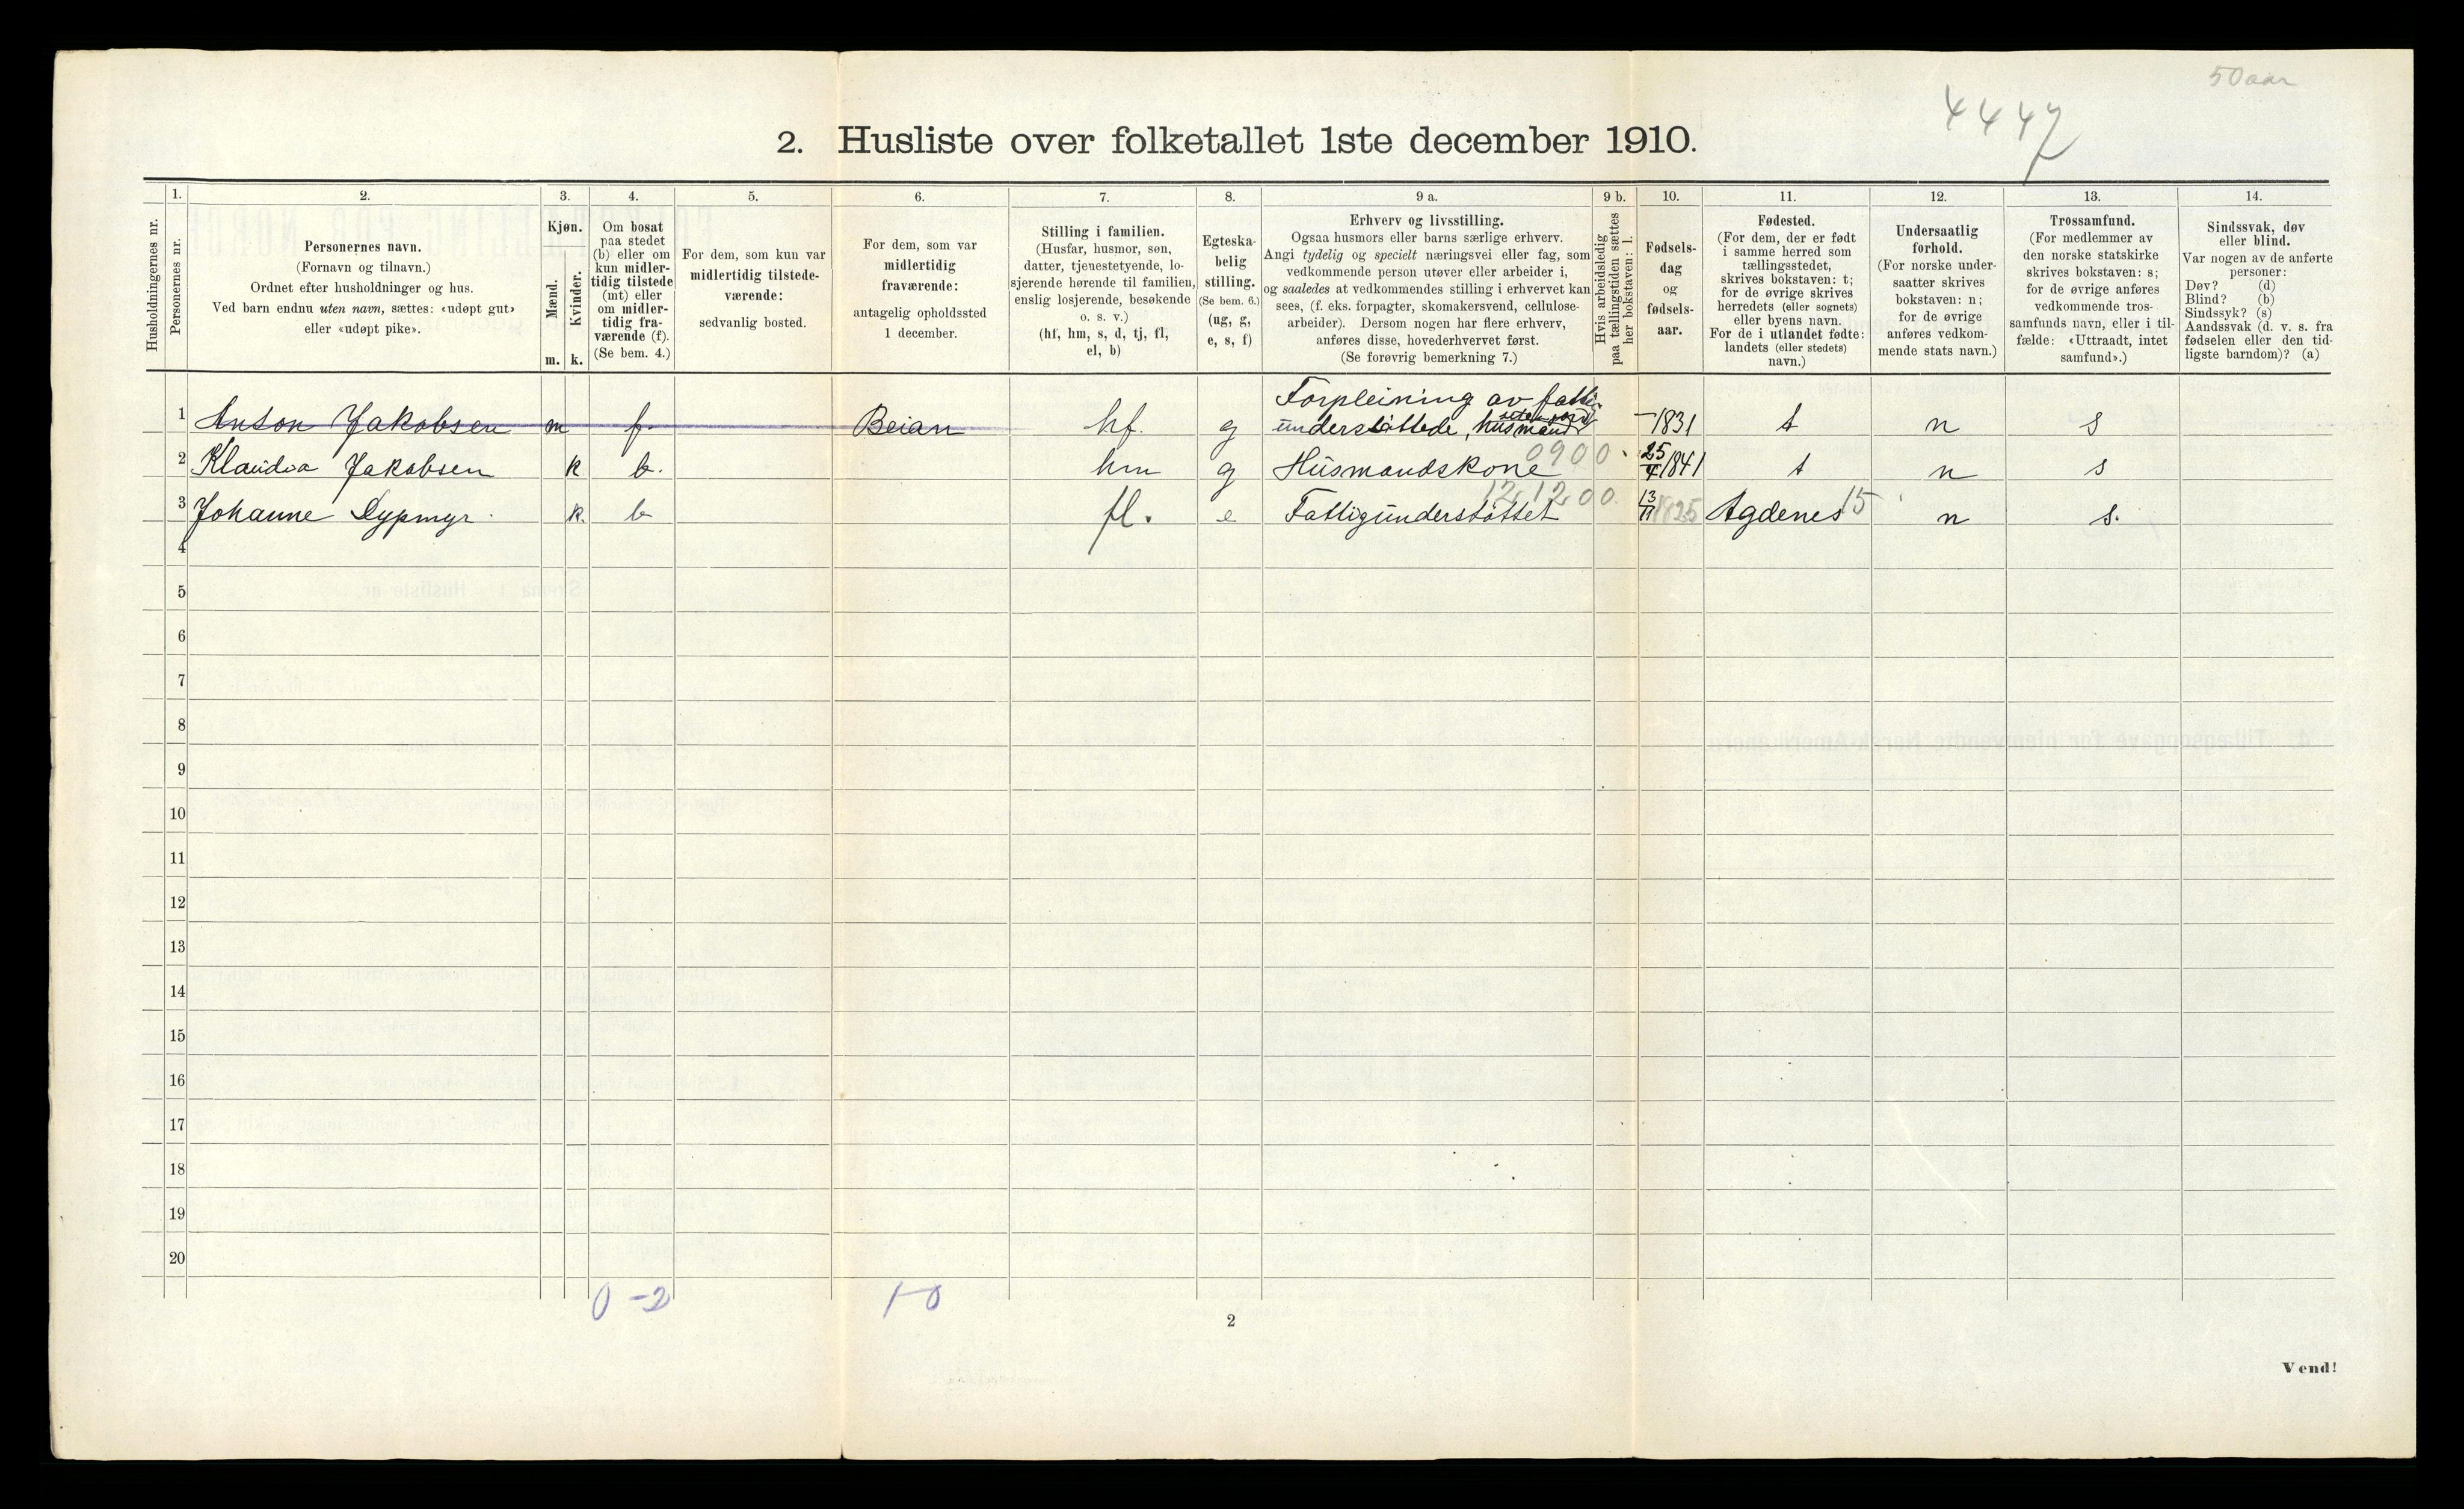 50 aar
4447
2. Husliste over folketallet 1ste december 1910.
Husholdningernes nr.
1.
Personernes nr.
2.
Personernes navn.
(Fornavn og tilnavn.)
Ordnet efter husholdninger og hus.
Ved barn endnu uten navn, sættes: «udøpt gut»
eller «udøpt pike».
3.
Kjøn.
Mænd.
Kvinder.
m. k.
4.
Om bosat
paa stedet
(b) eller om
kun midler-
tidig tilstede
(mt) eller
om midler-
tidig fra-
værende (f).
(Se bem. 4.)
5.
For dem, som kun var
midlertidig tilstede-
værende:
sedvanlig bosted.
6.
For dem, som var
midlertidig
fraværende:
antagelig opholdssted
1 december.
7.
Stilling i familien.
(Husfar, husmor, søn,
datter, tjenestetyende, lo-
sjerende hørende til familien,
enslig losjerende, besøkende
o. s. v.)
(hf, hm, s, d, tj, fl,
el, b)
8.
Egteska-
belig
stilling.
(Se bem. 6.)
(ug, g,
e, s, f)
9 a.
Erhverv og livsstilling.
Ogsaa husmors eller barns særlige erhverv.
Angi tydelig og specielt næringsvei eller fag, som
vedkommende person utøver eller arbeider i,
og saaledes at vedkommendes stilling i erhvervet kan
sees, (f. eks. forpagter, skomakersvend, cellulose-
arbeider). Dersom nogen har flere erhverv,
anføres disse, hovederhvervet først.
(Se forøvrig bemerkning 7.)
9 b.
Hvis arbeidsledig
paa tællingstiden sættes
her bokstaven: l.
10.
Fødsels-
dag
og
fødsels-
aar.
11.
Fødested.
(For dem, der er født
i samme herred som
tællingsstedet,
skrives bokstaven: t;
for de øvrige skrives
herredets (eller sognets)
eller byens navn.
For de i utlandet fødte:
landets (eller stedets)
navn.)
12.
Undersaatlig
forhold.
(For norske under-
saatter skrives
bokstaven: n;
for de øvrige
anføres vedkom-
mende stats navn.)
13.
Trossamfund.
(For medlemmer av
den norske statskirke
skrives bokstaven: s;
for de øvrige anføres
vedkommende tros-
samfunds navn, eller i til-
fælde: «Uttraadt, intet
samfund».)
14.
Sindssvak, døv
eller blind.
Var nogen av de anførte
personer:
Døv? (d)
Blind? (b)
Sindssyk? (s)
Aandssvak (d. v. s. fra
fødselen eller den tid-
ligste barndom)? (a)
Forpleining av fatti-
1 Anton Jakobsen m f. Beian hf. g understöttede, husmand - 1831 t n s
0900
2 Klaudia Jakobsen k b. hm g Husmandskone 25/4 1841 t n s
12,1200.
3 Johanne Dypmyr. k. b fl. e Fattigunderstöttet 13/11 1825 Agdenes 15 n s.
4
5
6
7
8
9
10
11
12
13
14
15
16
17
18
19
20
0-2 1-0
2
Vend!